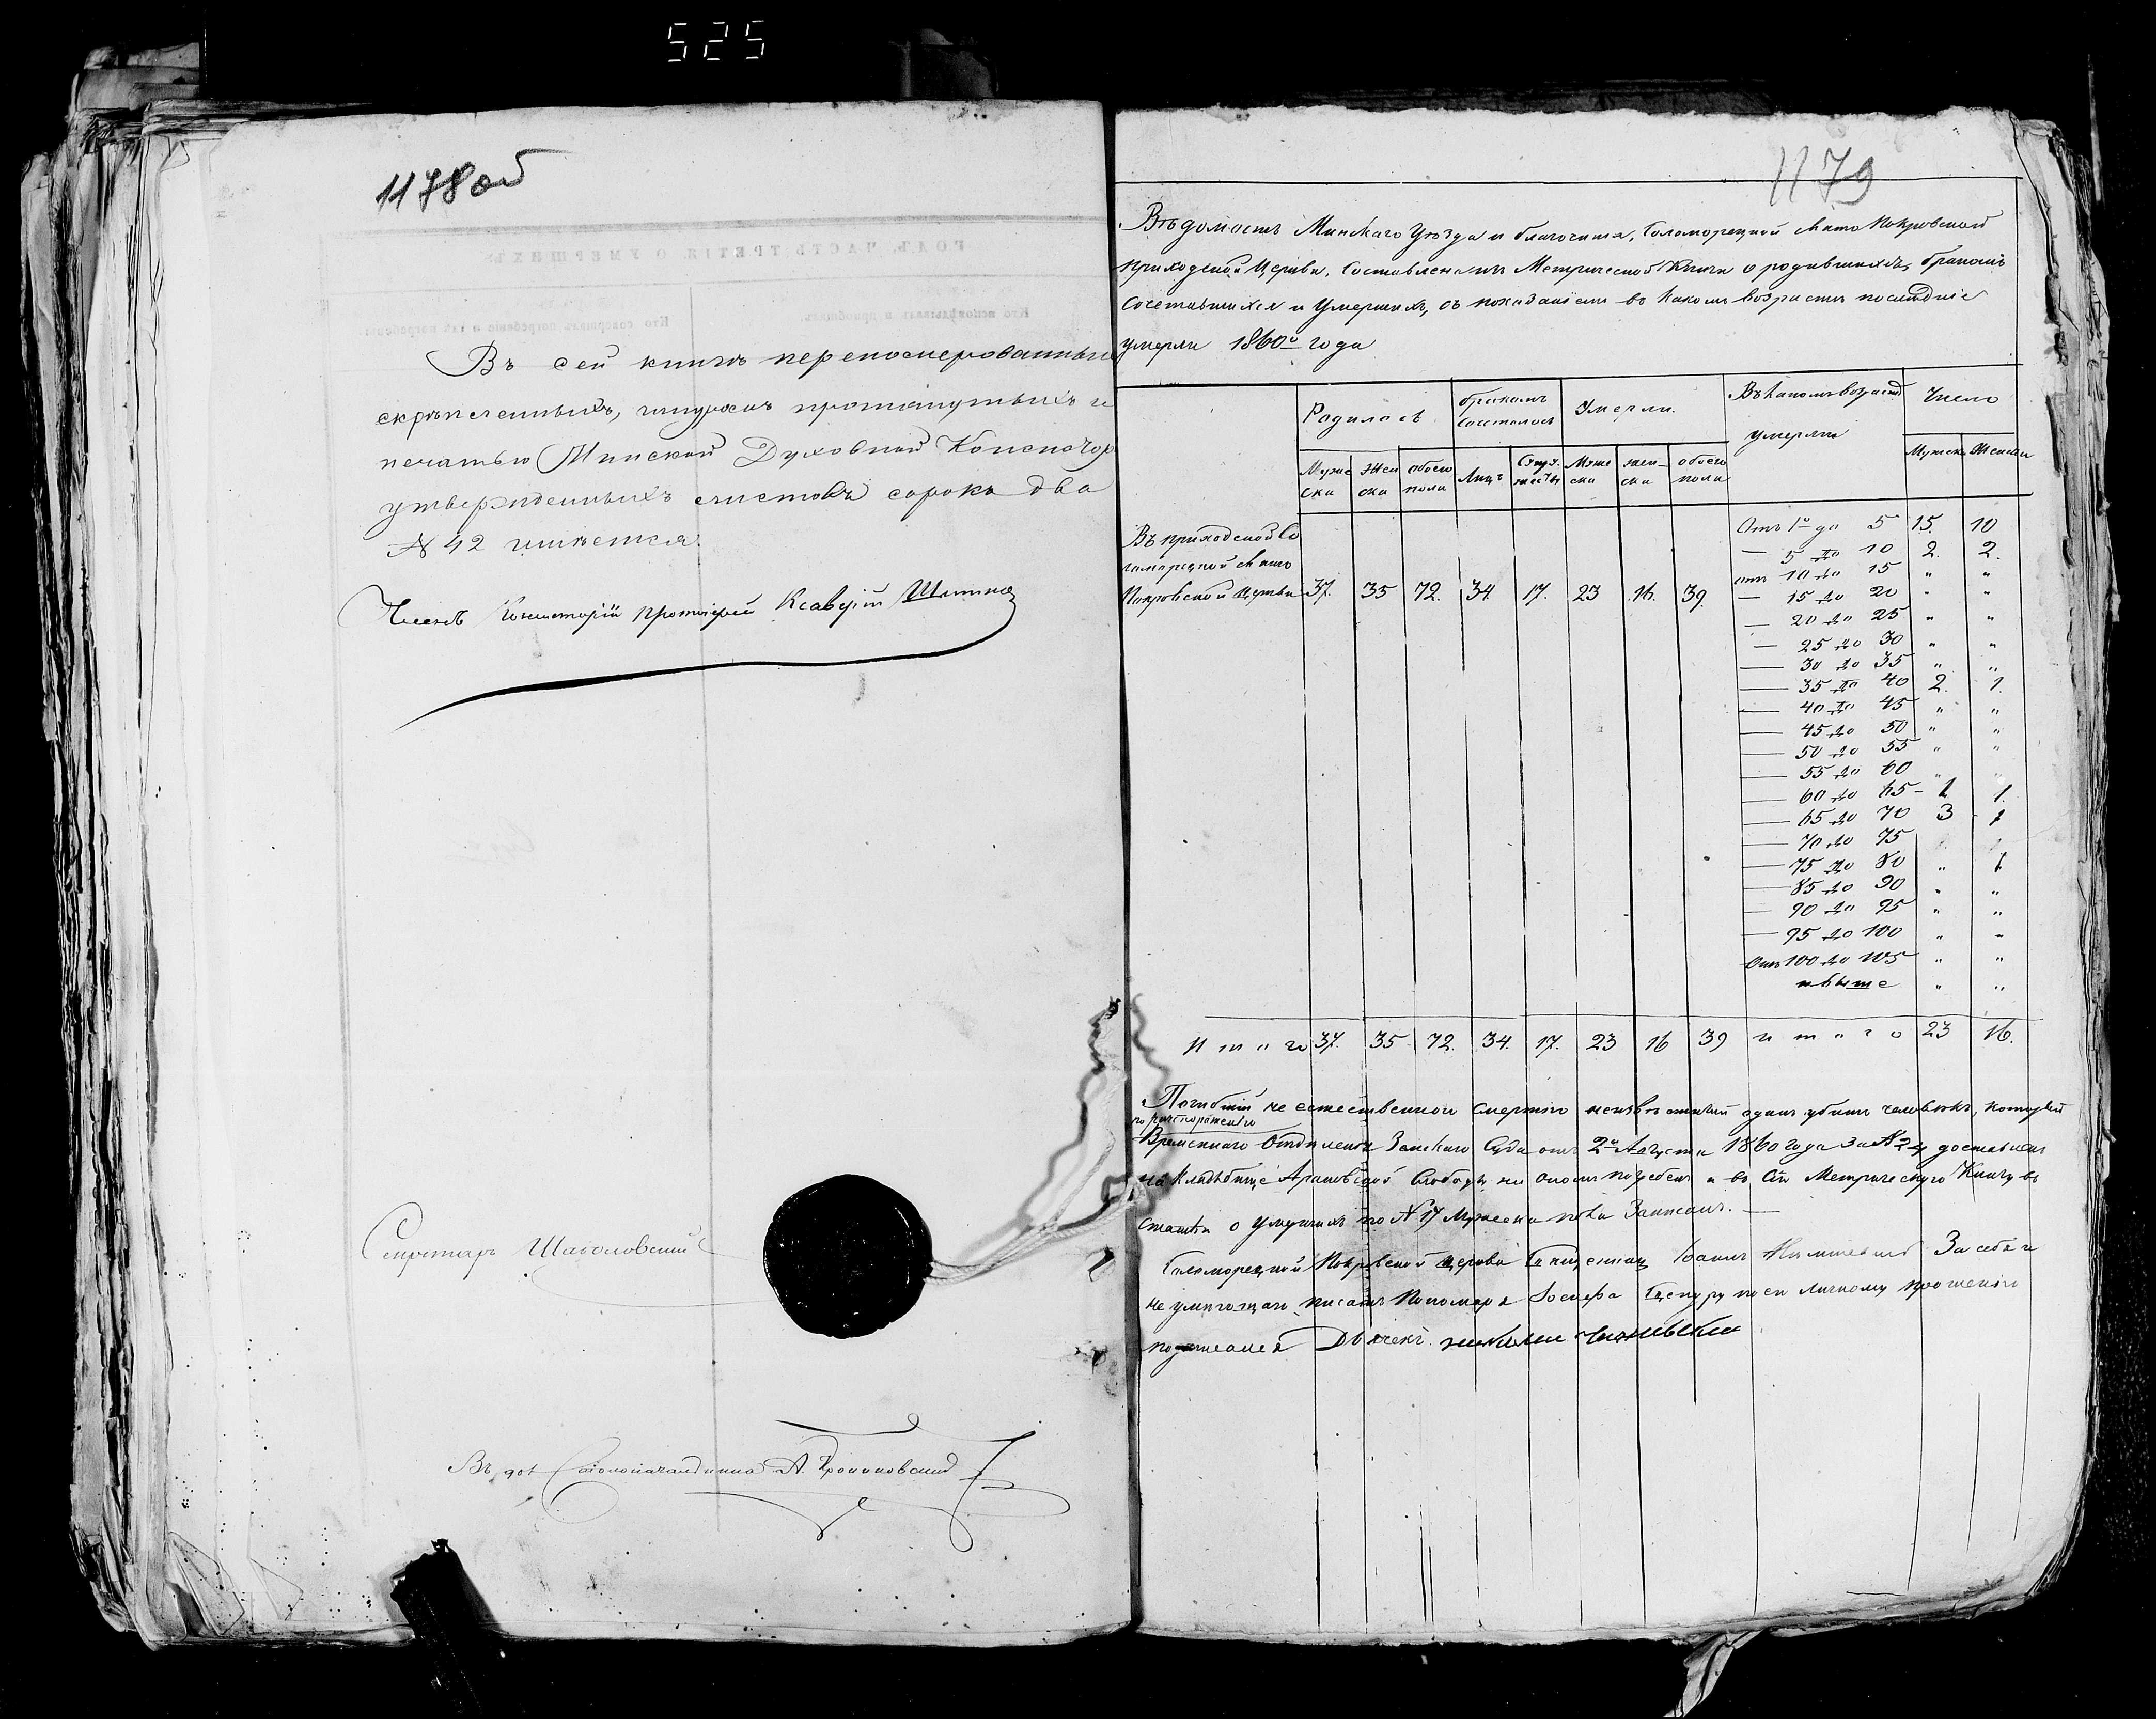 525
1178 об
Въ сей книгѣ перенумерованныхъ
скрѣпленныхъ, шнуромъ протянутыхъ и
печатью Минской Духовной Консистор
утвержденныхъ листовъ сорокъ два
№ 42 имѣется.
Членъ Консисторіи протоіерей Ксаверій
Секретарь
Въ дол Столоначальника А.
1179
Вѣдомость Минскаго Уѣзда и благочинія, Соломорецкой Свято Покровской
приходской Церкви, составленная изъ Метрической Книги о родившихся, бракомъ
сочетавшихся и умершихъ, съ показаніемъ въ какомъ возрастѣ послѣдніе
умерли 1860го года
Родилось бракомъ сочеталось Умерли. Въ какомъ возрастѣ умерли Число
Муже ска Жен ска обоего пола Лицъ Супружествъ Муже ска жен ска обоего пола Мужска Женска
Въ приходской Со
ломорецкой Свято
Покровской Церкви 37. 35 72. 34 17. 23 16. 39.
Отъ 1го до 5 15. 10
— 5 до 10 2. 2.
отъ 10 до 15 " "
— 15 до 20 " "
— 20 до 25 " "
— 25 до 30 " "
— 30 до 35 " "
— 35 до 40 2. 1.
— 40 до 45 " "
— 45 до 50 " "
— 50 до 55 " "
— 55 до 60 " "
— 60 до 65 - 1 1.
— 65 до 70 3 1
— 70 до 75
— 75 до 80 " 1
— 85 до 90 " "
— 90 до 95 " "
— 95 до 100 " "
Отъ 100 до 105 " "
и выше " "
Итого 37. 35 72. 34. 17. 23 16 39 итого 23 16.
Погибшій не естественною смертію неизвѣстный одинъ убитъ человѣкъ, который
по распоряженію
Временнаго Отдѣленія Земскаго Суда отъ 2го Августа 1860 года за № доставленъ
на кладбище Слободы на ономъ погребенъ и въ сію Метрическую Книгу въ
статьи о умершихъ по № 17 Мужеска пола Записанъ. —
Соломорецкой Покровской Церкви Священникъ Іоаннъ За себя и
не умѣющаго писать Пономаря Іосифа по его личному прошенію
подписался Дьячекъ